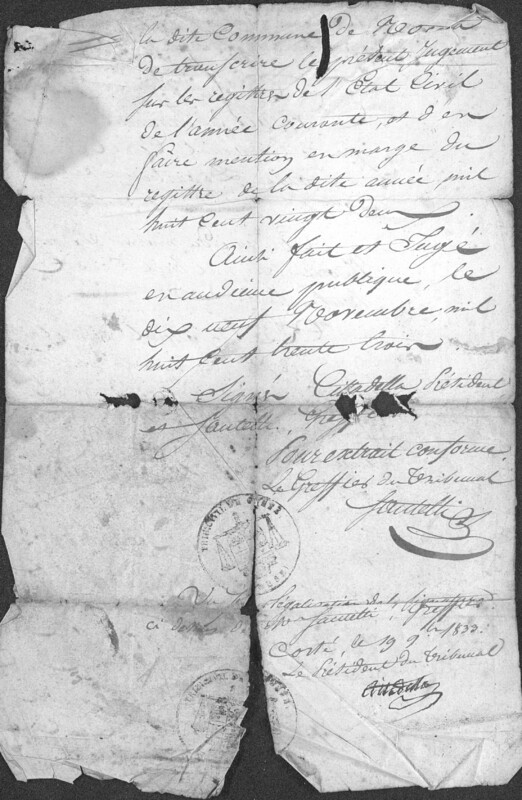 la dite Commune de
de transcrire le présent Jugement
sur les registres de l'Etat Civil
de l'année courante, et d'en
faire mention en marge du
registre de la dite année, mil
huit Cent vingt deux.
Ainsi fait et Jugé
en audience publique, le
dix neuf Novembre, mil
huit Cent trente trois.
Signés Cittadella Président
et Santelli,
Pour extrait conforme
Le Greffier du Tribunal
Santelli
TRIBUNAL
légalisation de la signature
ci Santelli, Greffier
Corté, le 19 9bre 1833.
Le Président du Tribunal
Cittadella